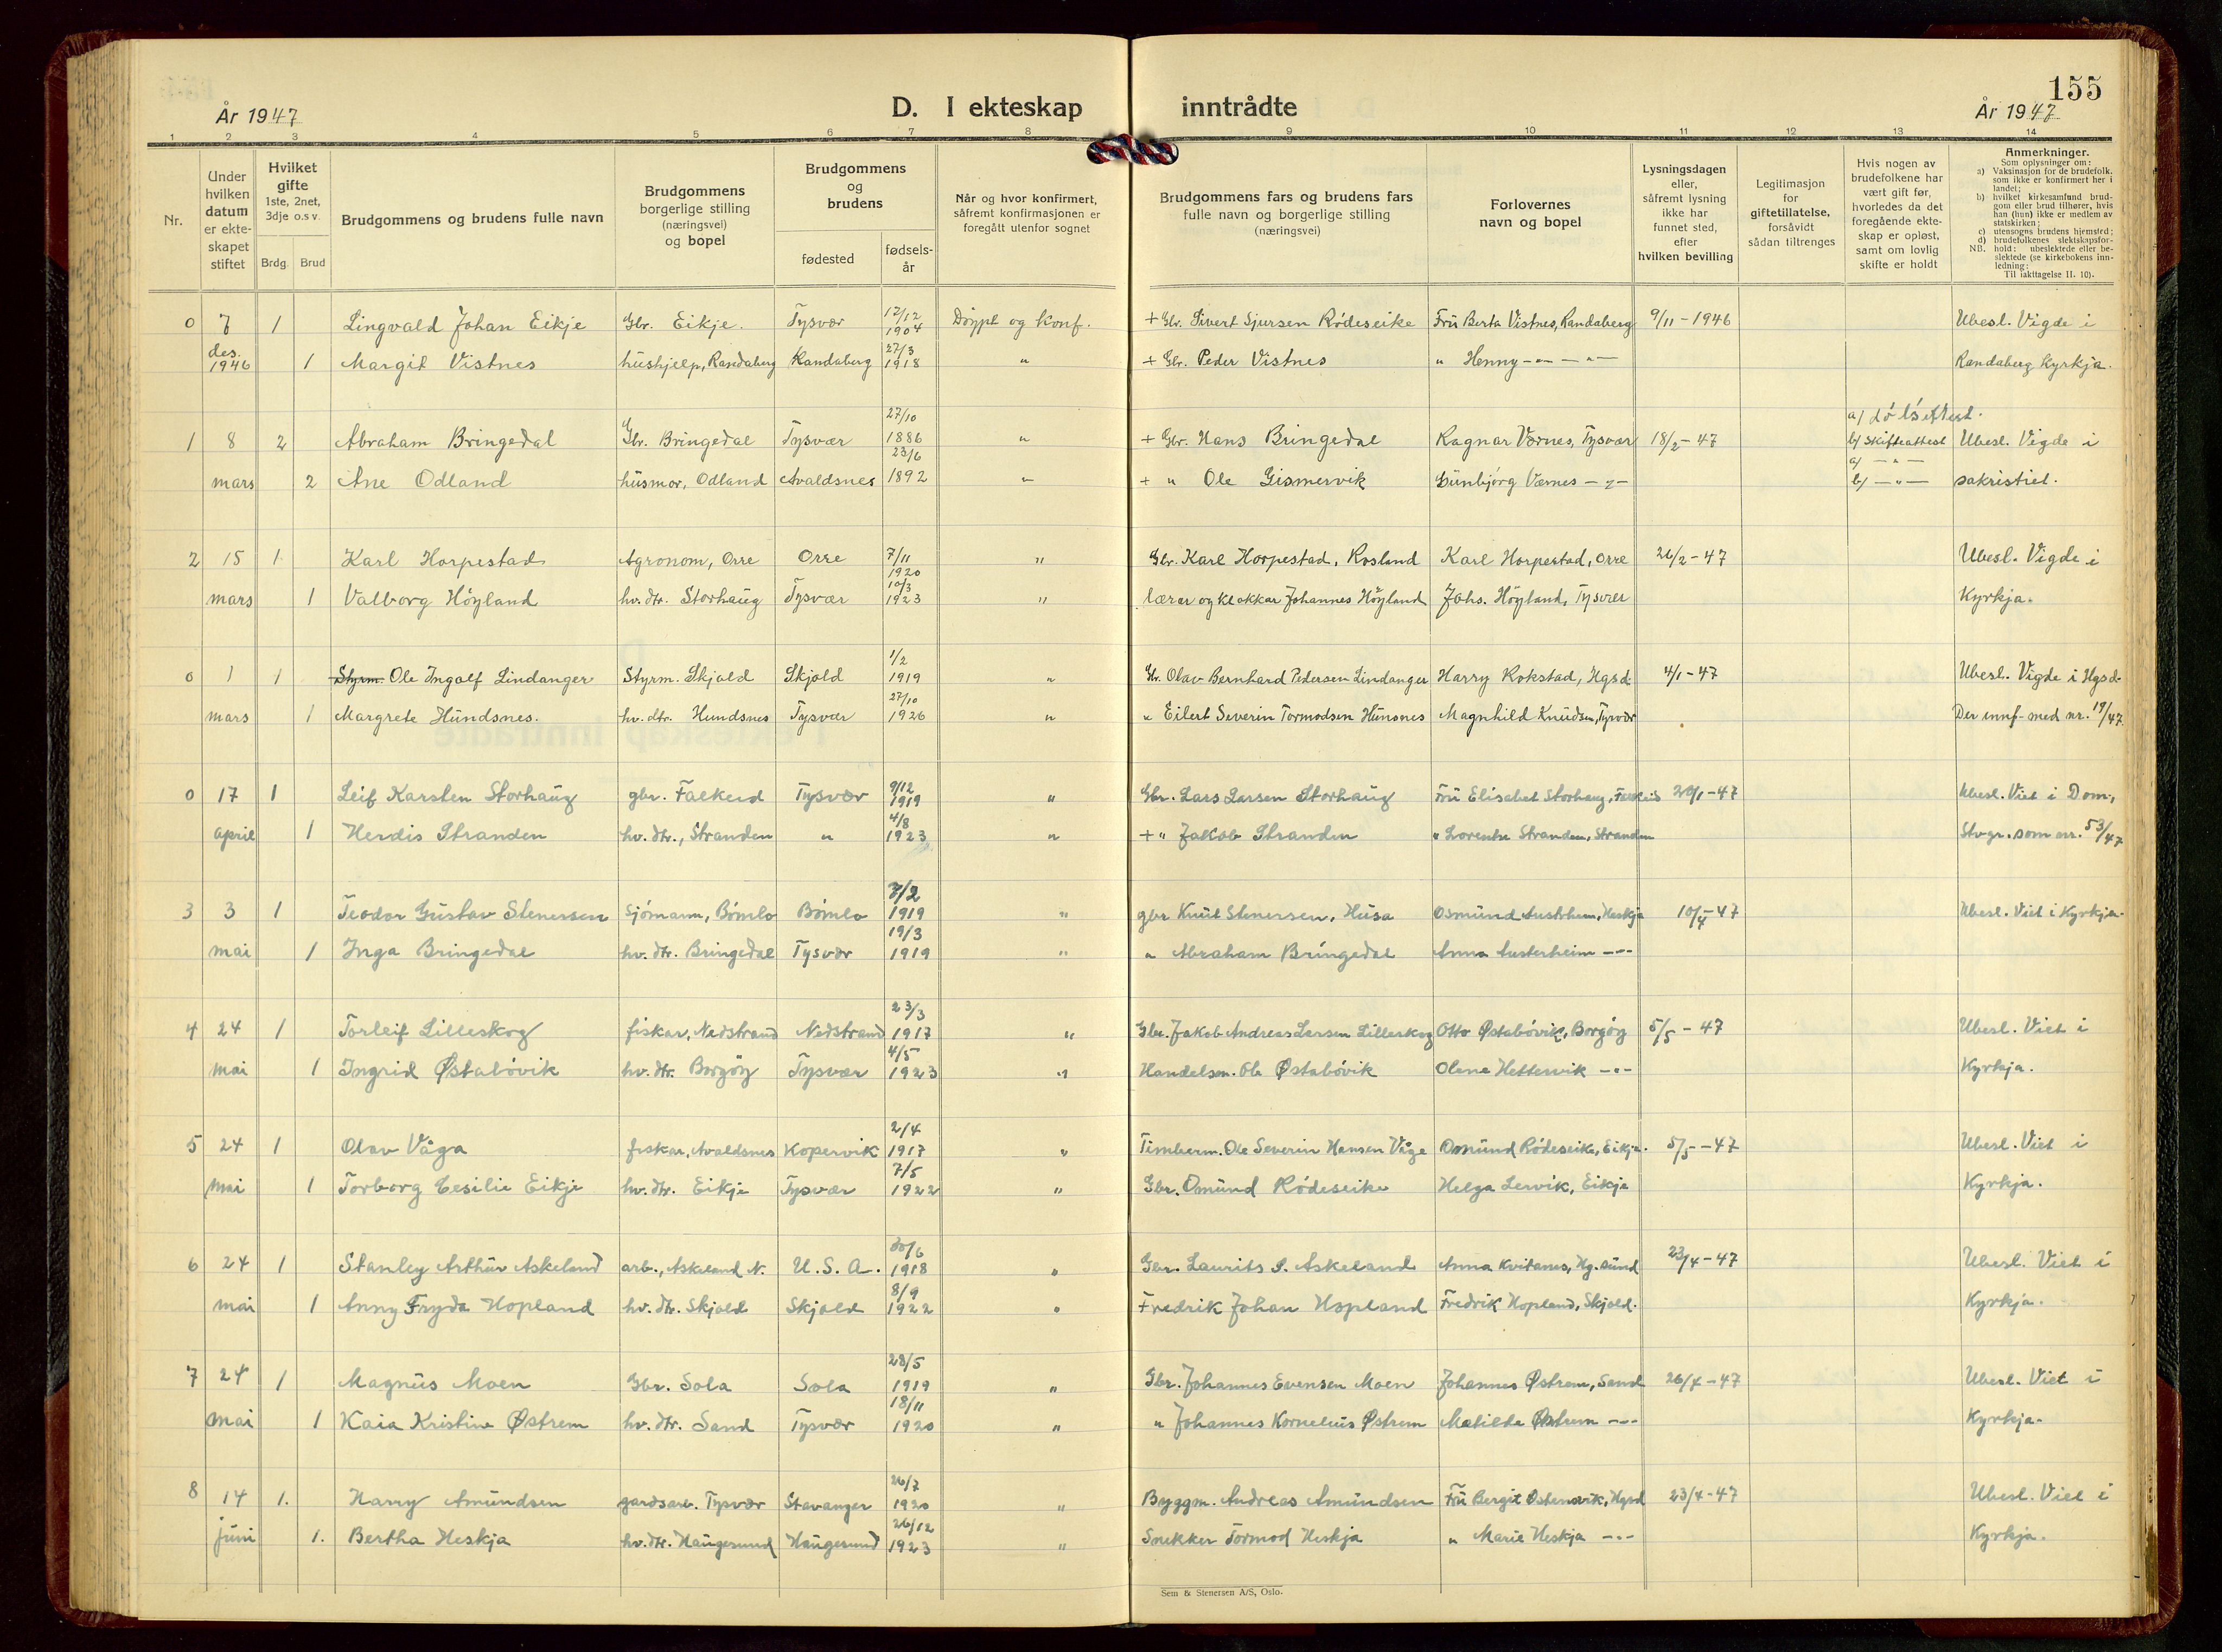 155
År 1947
D. I ekteskap inntrådte
År 1947
1 2 3 4 5 6 7 8 9 10 11 12 13 14
Nr.
Under hvilken datum er ekteskapet stiftet
Hvilket gifte 1ste, 2net, 3dje o.s v.
Brdg. Brud
Brudgommens og brudens fulle navn
Brudgommens borgerlige stilling (næringsvei) og bopel
Brudgommens og brudens
fødested
fødsels-år
Når og hvor konfirmert, såfremt konfirmasjonen er foregått utenfor sognet
Brudgommens fars og brudens fars fulle navn og borgerlige stilling (næringsvei)
Forlovernes navn og bopel
Lysningsdagen eller, såfremt lysning ikke har funnet sted, efter hvilken bevilling
Legitimasjon for giftetillatelse, forsåvidt sådan tiltrenges
Hvis nogen av brudefolkene har vært gift før, hvorledes da det foregående ekteskap er opløst, samt om lovlig skifte er holdt
Anmerkninger.
Som oplysninger om:
a) Vaksinasjon for de brudefolk. som ikke er konfirmert her i landet;
b) hvilket kirkesamfund brudgom eller brud tilhører, hvis han (hun) ikke er medlem av statskirken;
c) utensogns brudens hjemsted;
d) brudefolkenes slektskapsforhold: ubeslektede eller beslektede (se kirkebokens innledning:
NB. Til iakttagelse II. 10).
0 7 1 Lingvald Johan Eikje Gbr. Eikje. Tysvær 12/12 1904 Döypt og konf. + Gbr. Sivert Sjursen Rödeseike Frü Berta Vistnes, Randaberg 9/11 - 1946 Ubesl. Vigde i
des. 1946 1 Margit Vistnes hüshjelp, Randaberg Randaberg 27/3 1918 " + Gbr. Peder Vistnes " Henny -"- -"- Randaberg Kyrkja.
1 8 2 Abraham Bringedal Gbr. Bringedal Tysvær 27/10 1886 " + Gbr. Hans Bringedal Ragnar Værnes, Tysvær 18/2 - 47 a/ b/ skifteattest Ubesl. Vigde i
mars 2 Ane Odland hüsmor, Odland Avaldsnes 23/6 1892 " + " Ole Gismervik Günbjörg Værnes -"- a/ -"- b/ -"- sakristiet.
2 15 1 Karl Horpestad Agronom, Orre Orre 7/11 1920 " Gbr. Karl Horpestad, Rosland Karl Horpestad, Orre 26/2 - 47 Ubesl. Vigde i
mars 1 Valborg Höyland hv. dtr. Storhaüg Tysvær 10/3 1923 " lærar og klokkar Johannes Höyland Johs. Höyland, Tysvær Kyrkja.
0 1 1 Styrm. Ole Ingolf Lindanger Styrm. Skjold Skjold 1/2 1919 " Gbr. Olav Bernhard Pedersen Lindanger Harry Rokstad, Hgsd. 4/1 - 47 Ubesl. Vigde i Hgsd.
mars 1 Margrete Hündsnes. hv. dtr. Hundsnes Tysvær 27/10 1926 " " Eilert Severin Tormodsen Hünsnes Magnhild Knüdsen, Tysvær Der innf. med nr. 19/47.
0 17 1 Leif Karsten Storhaüg gbr. Falkeid Tysvær 9/12 1919 " Gbr. Lars Larsen Storhaüg Frü Elisabet Storhaug, 20/1 - 47 Ubesl. Viet i Dom.,
april 1 Herdis Stranden hv. dtr., Stranden " 4/8 1923 " + " Jakob Stranden " Lorentse Stranden, Stranden Stvgr. som nr. 53/47
3 3 1 Teodor Güstav Stenersen Sjömann, Bömlo Bömlo 7/2 1919 " gbr Knüt Stenersen, Hüsa Osmünd Austrheim, Heskja 10/4 - 47 Ubesl. Viet i Kyrkja.
mai 1 Inga Bringedal hv. dtr. Bringedal Tysvær 19/3 1919 " " Abraham Bringedal Anna Austerheim -"-
4 24 1 Torleif Lilleskog fiskar, Nedstrand Nedstrand 23/3 1917 " Gbr. Jakob Andreas Larsen Lilleskog Otto Østabövik, Borgöy 5/5 - 47 Ubesl. Viet i
mai 1 Ingrid Østabövik hv. dtr. Borgöy Tysvær 4/5 1923 " Handelsm. Ole Østabövik Olene Hettervik -"- Kyrkja.
5 24 1 Olav Våga fiskar, Avaldsnes Kopervik 2/4 1917 " Timberm. Ole Severin Hansen Våge Omünd Rödeseike, Eikje. 5/5 - 47 Ubesl. Viet i
mai 1 Torborg Cesilie Eikje hv. dtr. Eikje Tysvær 7/5 1922 " Gbr. Omünd Rödeseike Helga Lervik, Eikje Kyrkja.
6 24 1 Stanley Arthür Askeland arb., Askeland N. U. S. A. 30/6 1918 " Gbr. Laurits S. Askeland Anna Kvitanes, Hg.sünd 23/4 - 47 Ubesl. Viet i
mai 1 Anny Fryda Hopland hv. dtr. Skjold Skjold 8/9 1922 " Fredrik Johan Hopland Fredrik Hopland, Skjold. Kyrkja.
7 24 1 Magnüs Moen Gbr. Sola Sola 28/5 1919 " Gbr. Johannes Evensen Moen Johannes Østrem, Sand 26/4 - 47 Ubesl. Viet i
mai 1 Kaia Kristine Østrem hv. dtr. Sand Tysvær 18/11 1920 " " Johannes Kornelius Østrem Matilde Østrem -"- Kyrkja.
8 14 1. Harry Amündsen gardsarb. Tysvær Stavanger 26/7 1920 " Byggm. Andreas Amündsen Frü Bergit Østensvik, Hgsd 23/4 - 47 Ubesl. Viet i
jüni 1. Bertha Heskja hv. dtr. Haügesund Haügesund 26/12 1923 " Snekker Tormod Heskja " Marie Heskja -"- Kyrkja.
Sem & Stenersen A/S, Oslo.